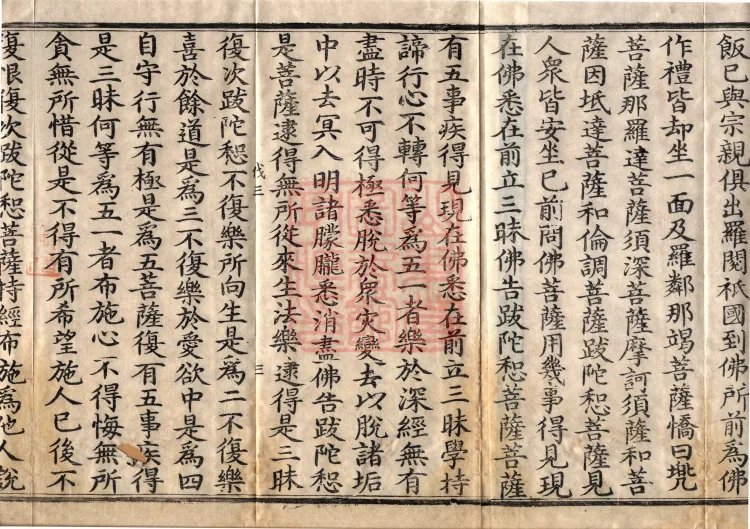 飯已與宗親俱出羅閱祇國到佛所前為佛
作禮皆却坐一面及羅鄰那竭菩薩憍曰兜
菩薩那羅達菩薩須深菩薩摩訶須薩和菩
薩因坻達菩薩和倫調菩薩跋陀惒菩薩見
人衆皆安坐已前問佛菩薩用幾事得見現
在佛悉在前立三昧佛告跋陀惒菩薩菩薩
有五事疾得見現在佛悉在前立三昧學持
諦行心不轉何等為五一者樂於深經無有
盡時不可得極悉脫於衆灾變去以脫諸垢
中以去冥入明諸朦朧悉消盡佛告跋陀惒
是菩薩逮得無所從來生法樂逮得是三昧
伐三 三
復次跋陀惒不復樂所向生是為二不復樂
喜於餘道是為三不復樂於愛欲中是為四
自守行無有極是為五菩薩復有五事疾得
是三昧何等為五一者布施心不得悔無所
貪無所惜從是不得有所希望施人已後不
復恨復次跋陀惒菩薩持經布施為他人說